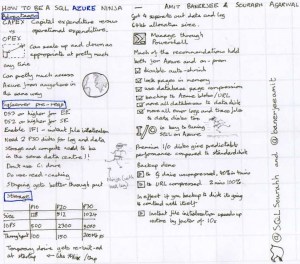 HOW TO BE A SQL AZURE NINJA — AMIT BANERJEE & SOURABH AGARWAL
CAPEX Capital expenditure versus
vs operational expenditure.
OPEX
Can scale up and down as
appropriate at pretty much
any time
Can pretty much access
Azure from anywhere in
the same way
DS3 or higher for EE
DS2 or higher for SE
Enable IFI - instant file initialization
Need 2 P30 disks for log and data
storage and compute need to be
in the same data centre!!
Don't use C: drive
Do use read-caching
Striping gets better through put
Storage
P10 P20 P30
Size 128 512 1024
IOPS 500 2300 5000
Throughput 100 150 200 Mb/s
Temporary drive gets re-built
at startup
data and log
64k allocation size
Manage through
Powershell
Much of the recommendations hold
both for Azure and on-prem
disable auto-shrink
lock pages in memory
use database page compression
backup to Azure blob/URL
move all databases to data disks
move all error logs and trace files
to data disks too
I/O is key to tuning
SQL on Azure
Premium I/O disks give predictable
performance compared to standard disk
Backup demo
to URL compressed 2 min 100%
In effect if you backup to disk its going
to contend with itself
Instant file initialization speeds up
restore by factor of 10x
@SQLSourabh and @banerjeeamit